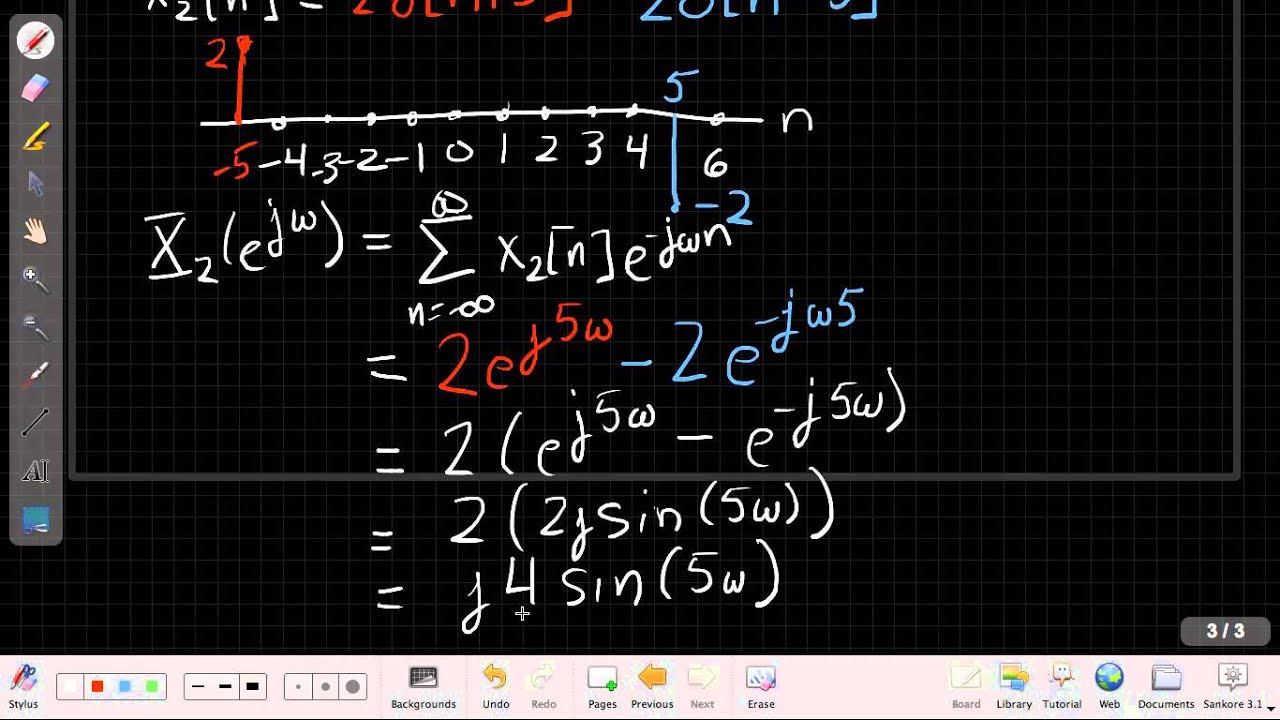 x₂[n] = 2δ[n+5] 2δ[n-5]
2
5
n
-5 -4 -3 -2 -1 0 1 2 3 4 6
-2
X₂(e^{jω}) = ∑_{n=-∞}^{∞} x₂[n] e^{-jωn}
= 2e^{j5ω} - 2e^{-jω5}
= 2(e^{j5ω} - e^{-j5ω})
= 2(2j sin(5ω))
= j4 sin(5ω)
3 / 3
AI
Stylus Backgrounds Undo Redo Pages Previous Next Erase Board Library Tutorial Web Documents Sankore 3.1